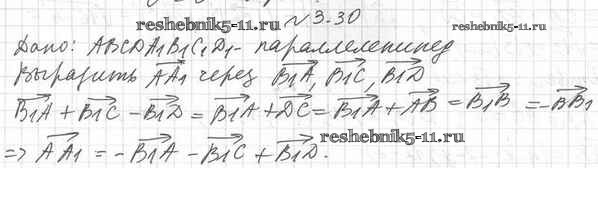 №3.30
reshebnik5-11.ru
reshebnik5-11.ru
Дано: ABCDA1B1C1D1- параллелепипед
Выразить AA1 через B1A, B1C, B1D
B1A + B1C - B1D = B1A + DC = B1A + AB = B1B = -BB1
reshebnik5-11.ru
=> AA1 = -B1A - B1C + B1D.